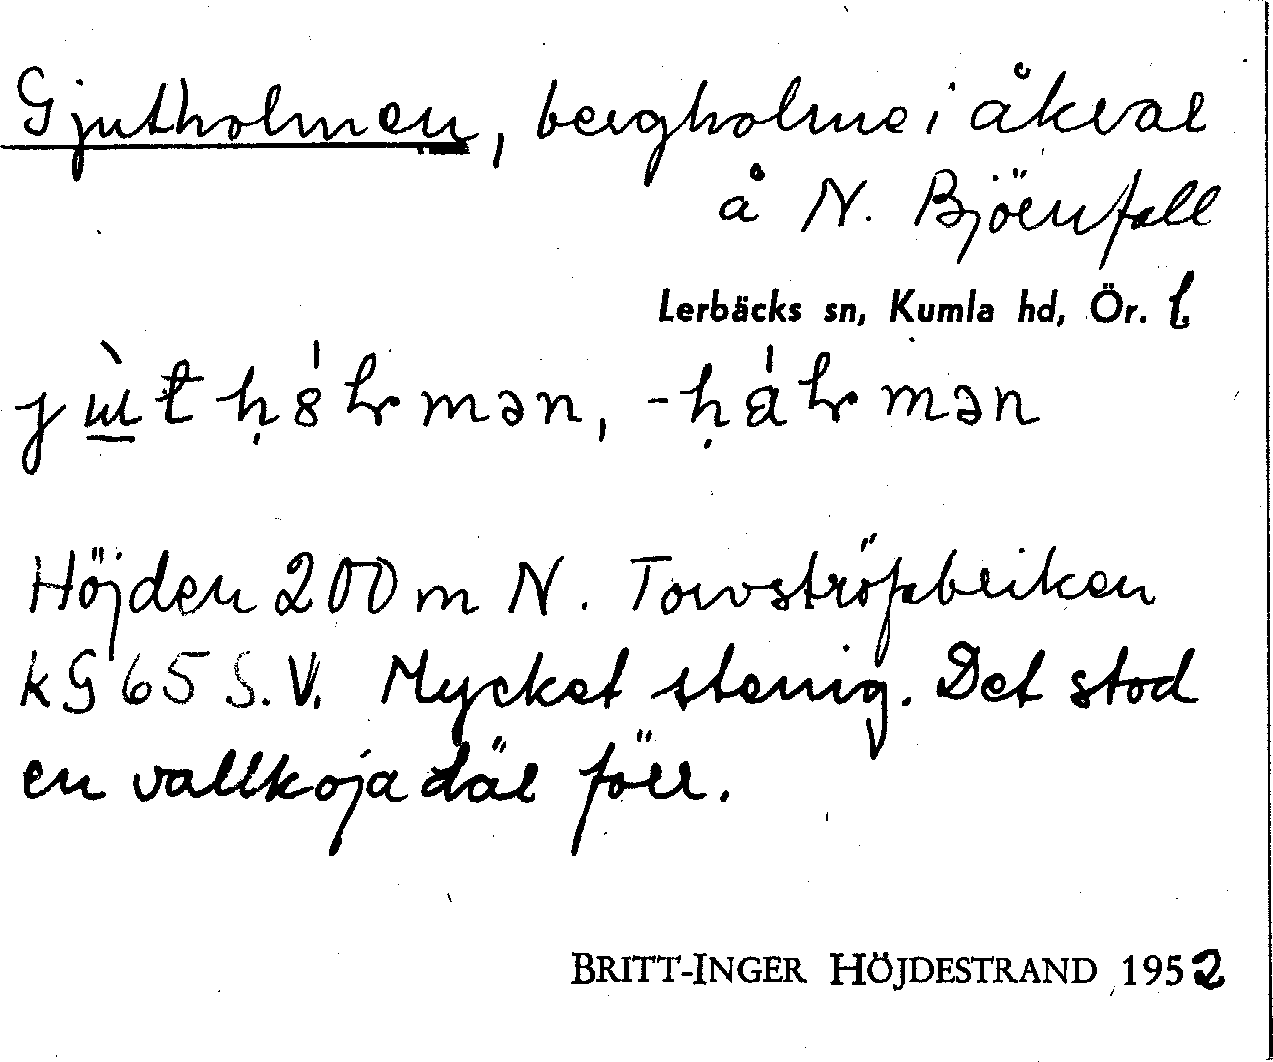 Gjutholmen, bergholme i åkrar
å N. Björnfall
Lerbäcks sn, Kumla hd, Ör. l
-hålmən
Höjden 200 m N. Torvströfabriken
kG 65 S.V. Mycket stenig. Det stod
en vallkoja där förr.
BRITT-INGER HÖJDESTRAND 1952